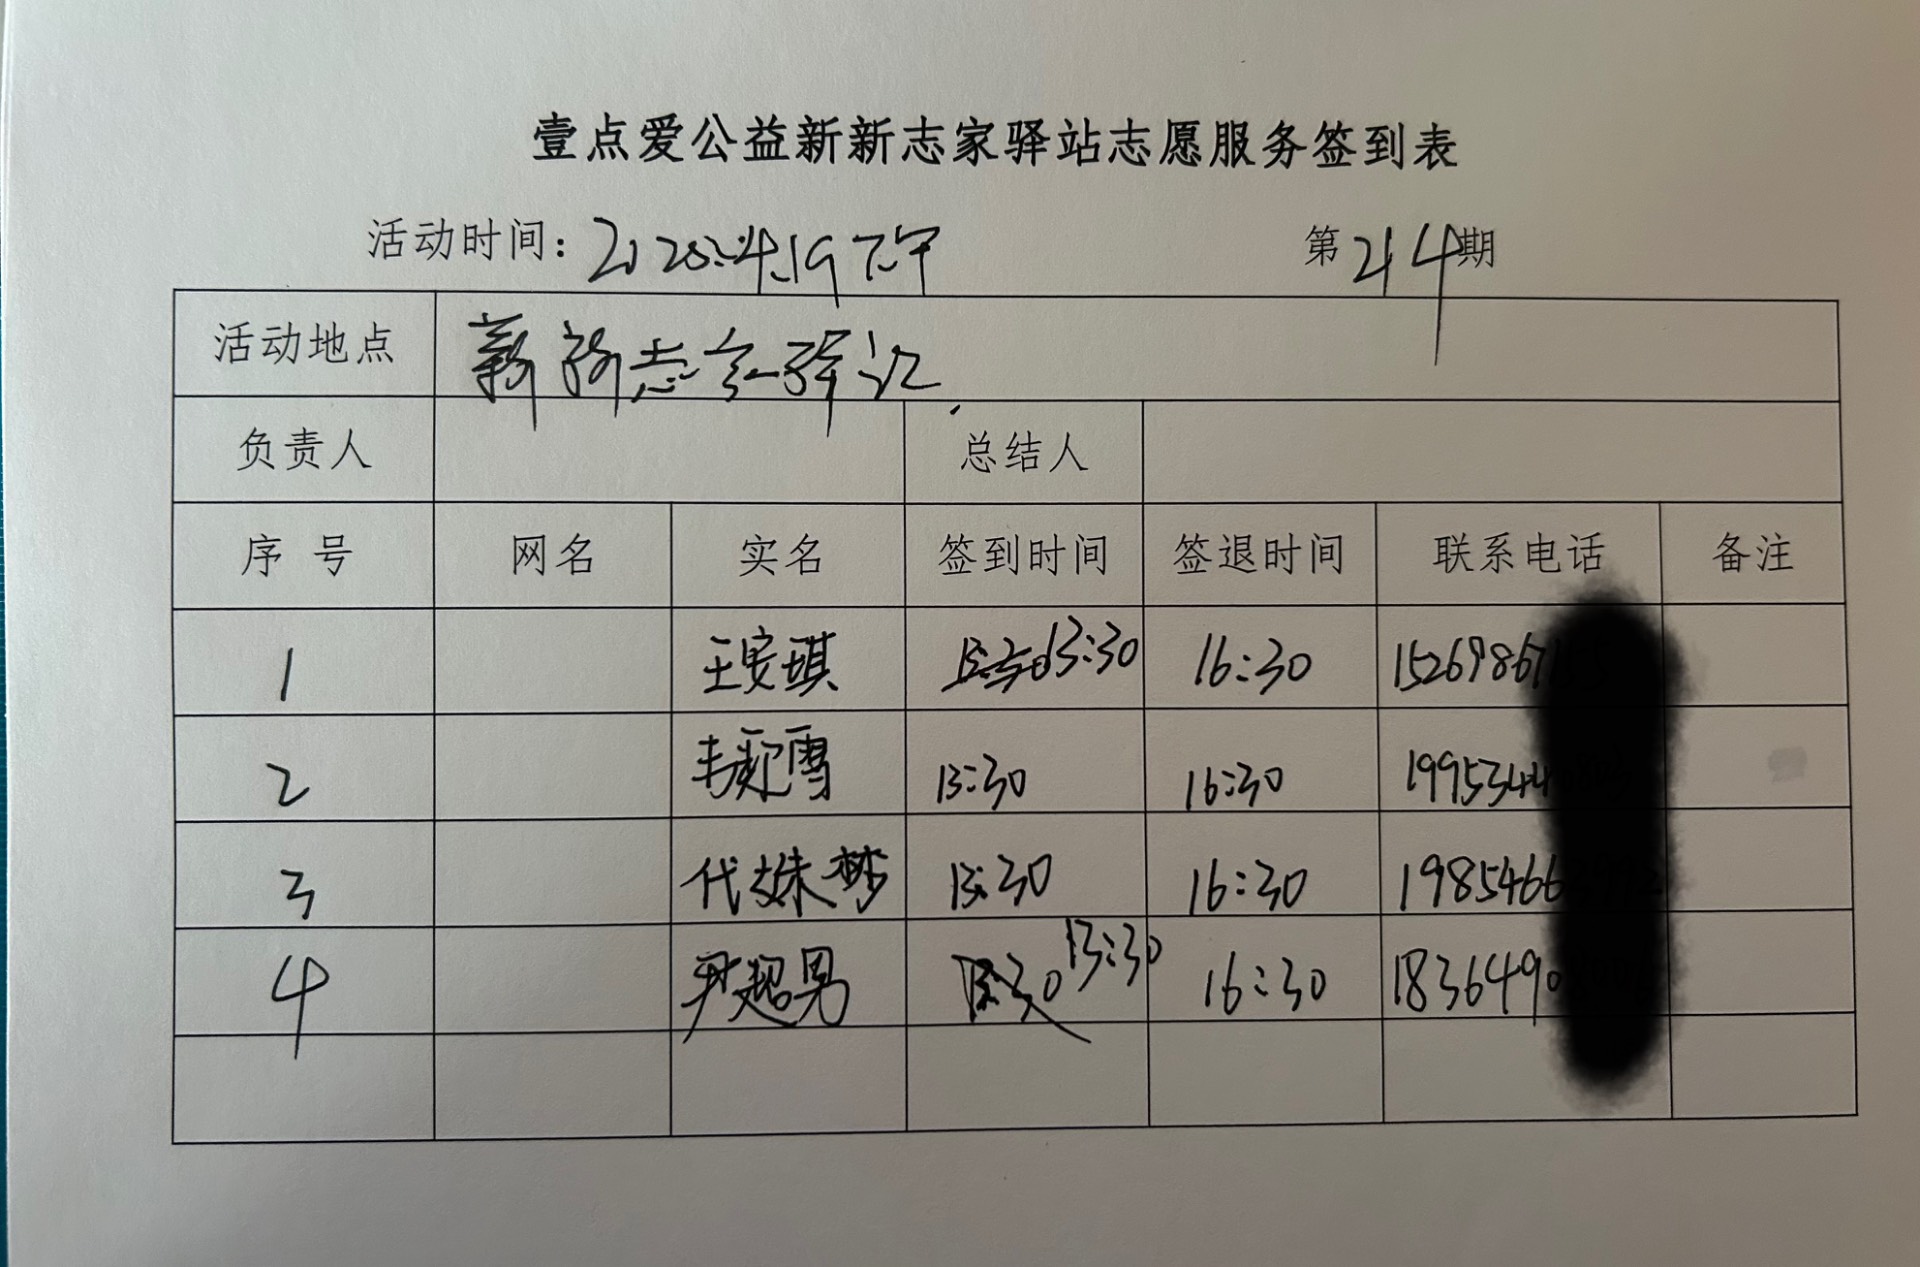 壹点爱公益新新志家驿站志愿服务签到表
活动时间: 下午 第214期
活动地点 新新志家驿站
负责人 总结人
序号 网名 实名 签到时间 签退时间 联系电话 备注
1 王安琪 13:30 16:30 1526986
2 雪 13:30 16:30 1995344
3 代姝梦 13:30 16:30 1985466
4 尹超男 13:30 16:30 1836490